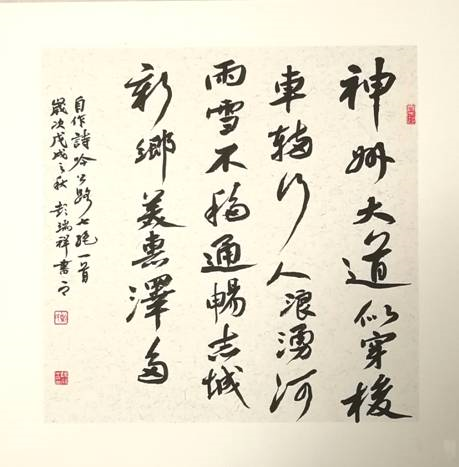 神州大道似穿梭
車輛行人浪湧河
雨雪不移通暢志城
新鄉美惠澤多
自作詩吟公路七絕一首
歲次戊戌之秋 彭瑞祥書